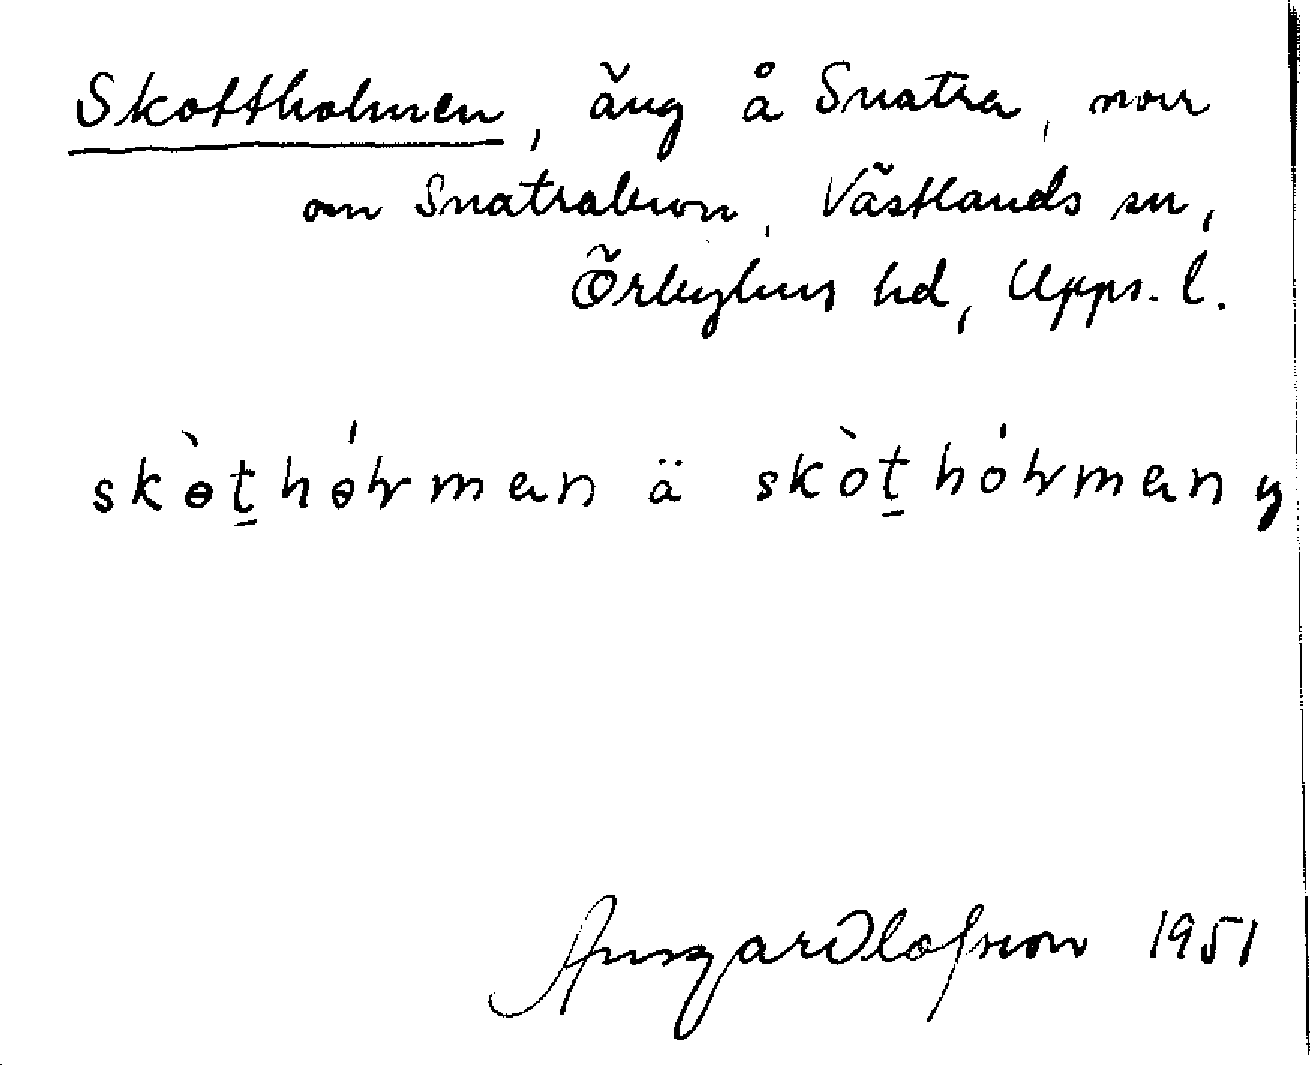 Skottholmen, äng å Snatra, norr
om Snatrabron, Västlands sn,
Örbyhus hd, Upps. l.
skɵ̀t̠hɵ́ɽmɐn ä skòt̠hóɽmɐn y
Ansgar Olofsson 1951